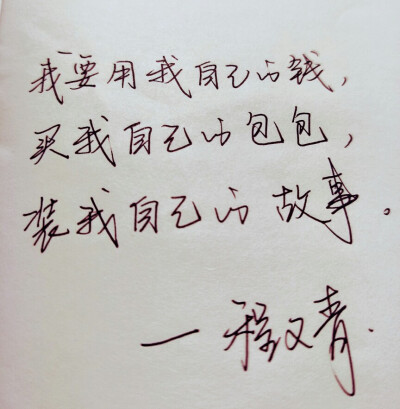 我要用我自己的钱，
买我自己的包包，
装我自己的故事。
一程又青.